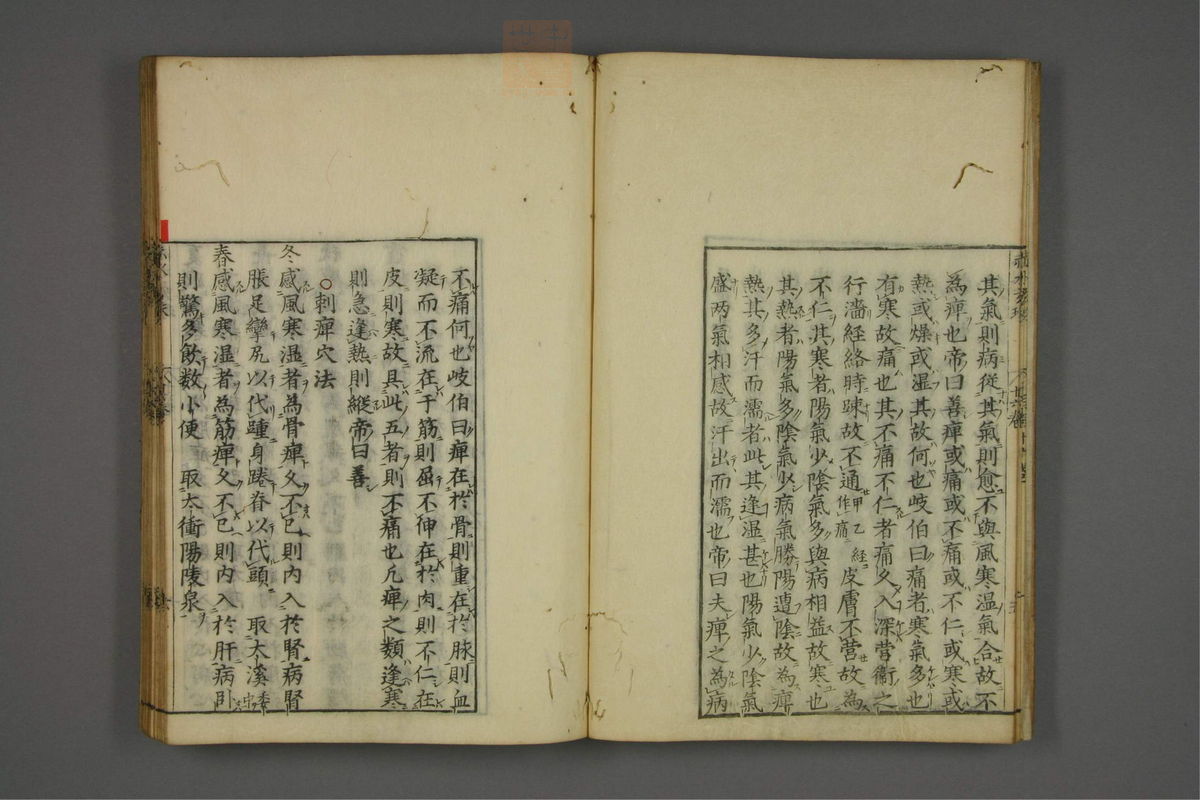 其氣則病從其氣則愈不與風寒溫氣合故不
為痺也帝曰善痺或痛或不痛或不仁或寒或
熱或燥或湿其故何也岐伯曰痛者寒氣多也
有寒故痛也其不痛不仁者痛久入深營衛之
行濇経絡時踈故不通甲乙経作痛皮膚不营故為
不仁其寒者陽氣少陰氣多與病相益故寒也
其熱者陽氣多陰氣少病氣勝陽遭陰故為痺
熱其多汗而濡者此其逢湿甚也陽氣少陰氣
盛两氣相感故汗出而濡也帝曰夫痺之為病
不痛何也岐伯曰痺在於骨則重在於脉則血
凝而不流在于筋則屈不伸在於肉則不仁在
皮則寒故具此五者則不痛也凢痺之類逢寒
則急逢熱則縱帝曰善
○刺痺穴法
冬感風寒湿者為骨痺久不已則内入於腎病腎
脹足攣尻以代踵身踡脊以代頭取太溪委中
春感風寒湿者為筋痺久不已則内入於肝病卧
則驚多飲数小便取太衝陽陵泉